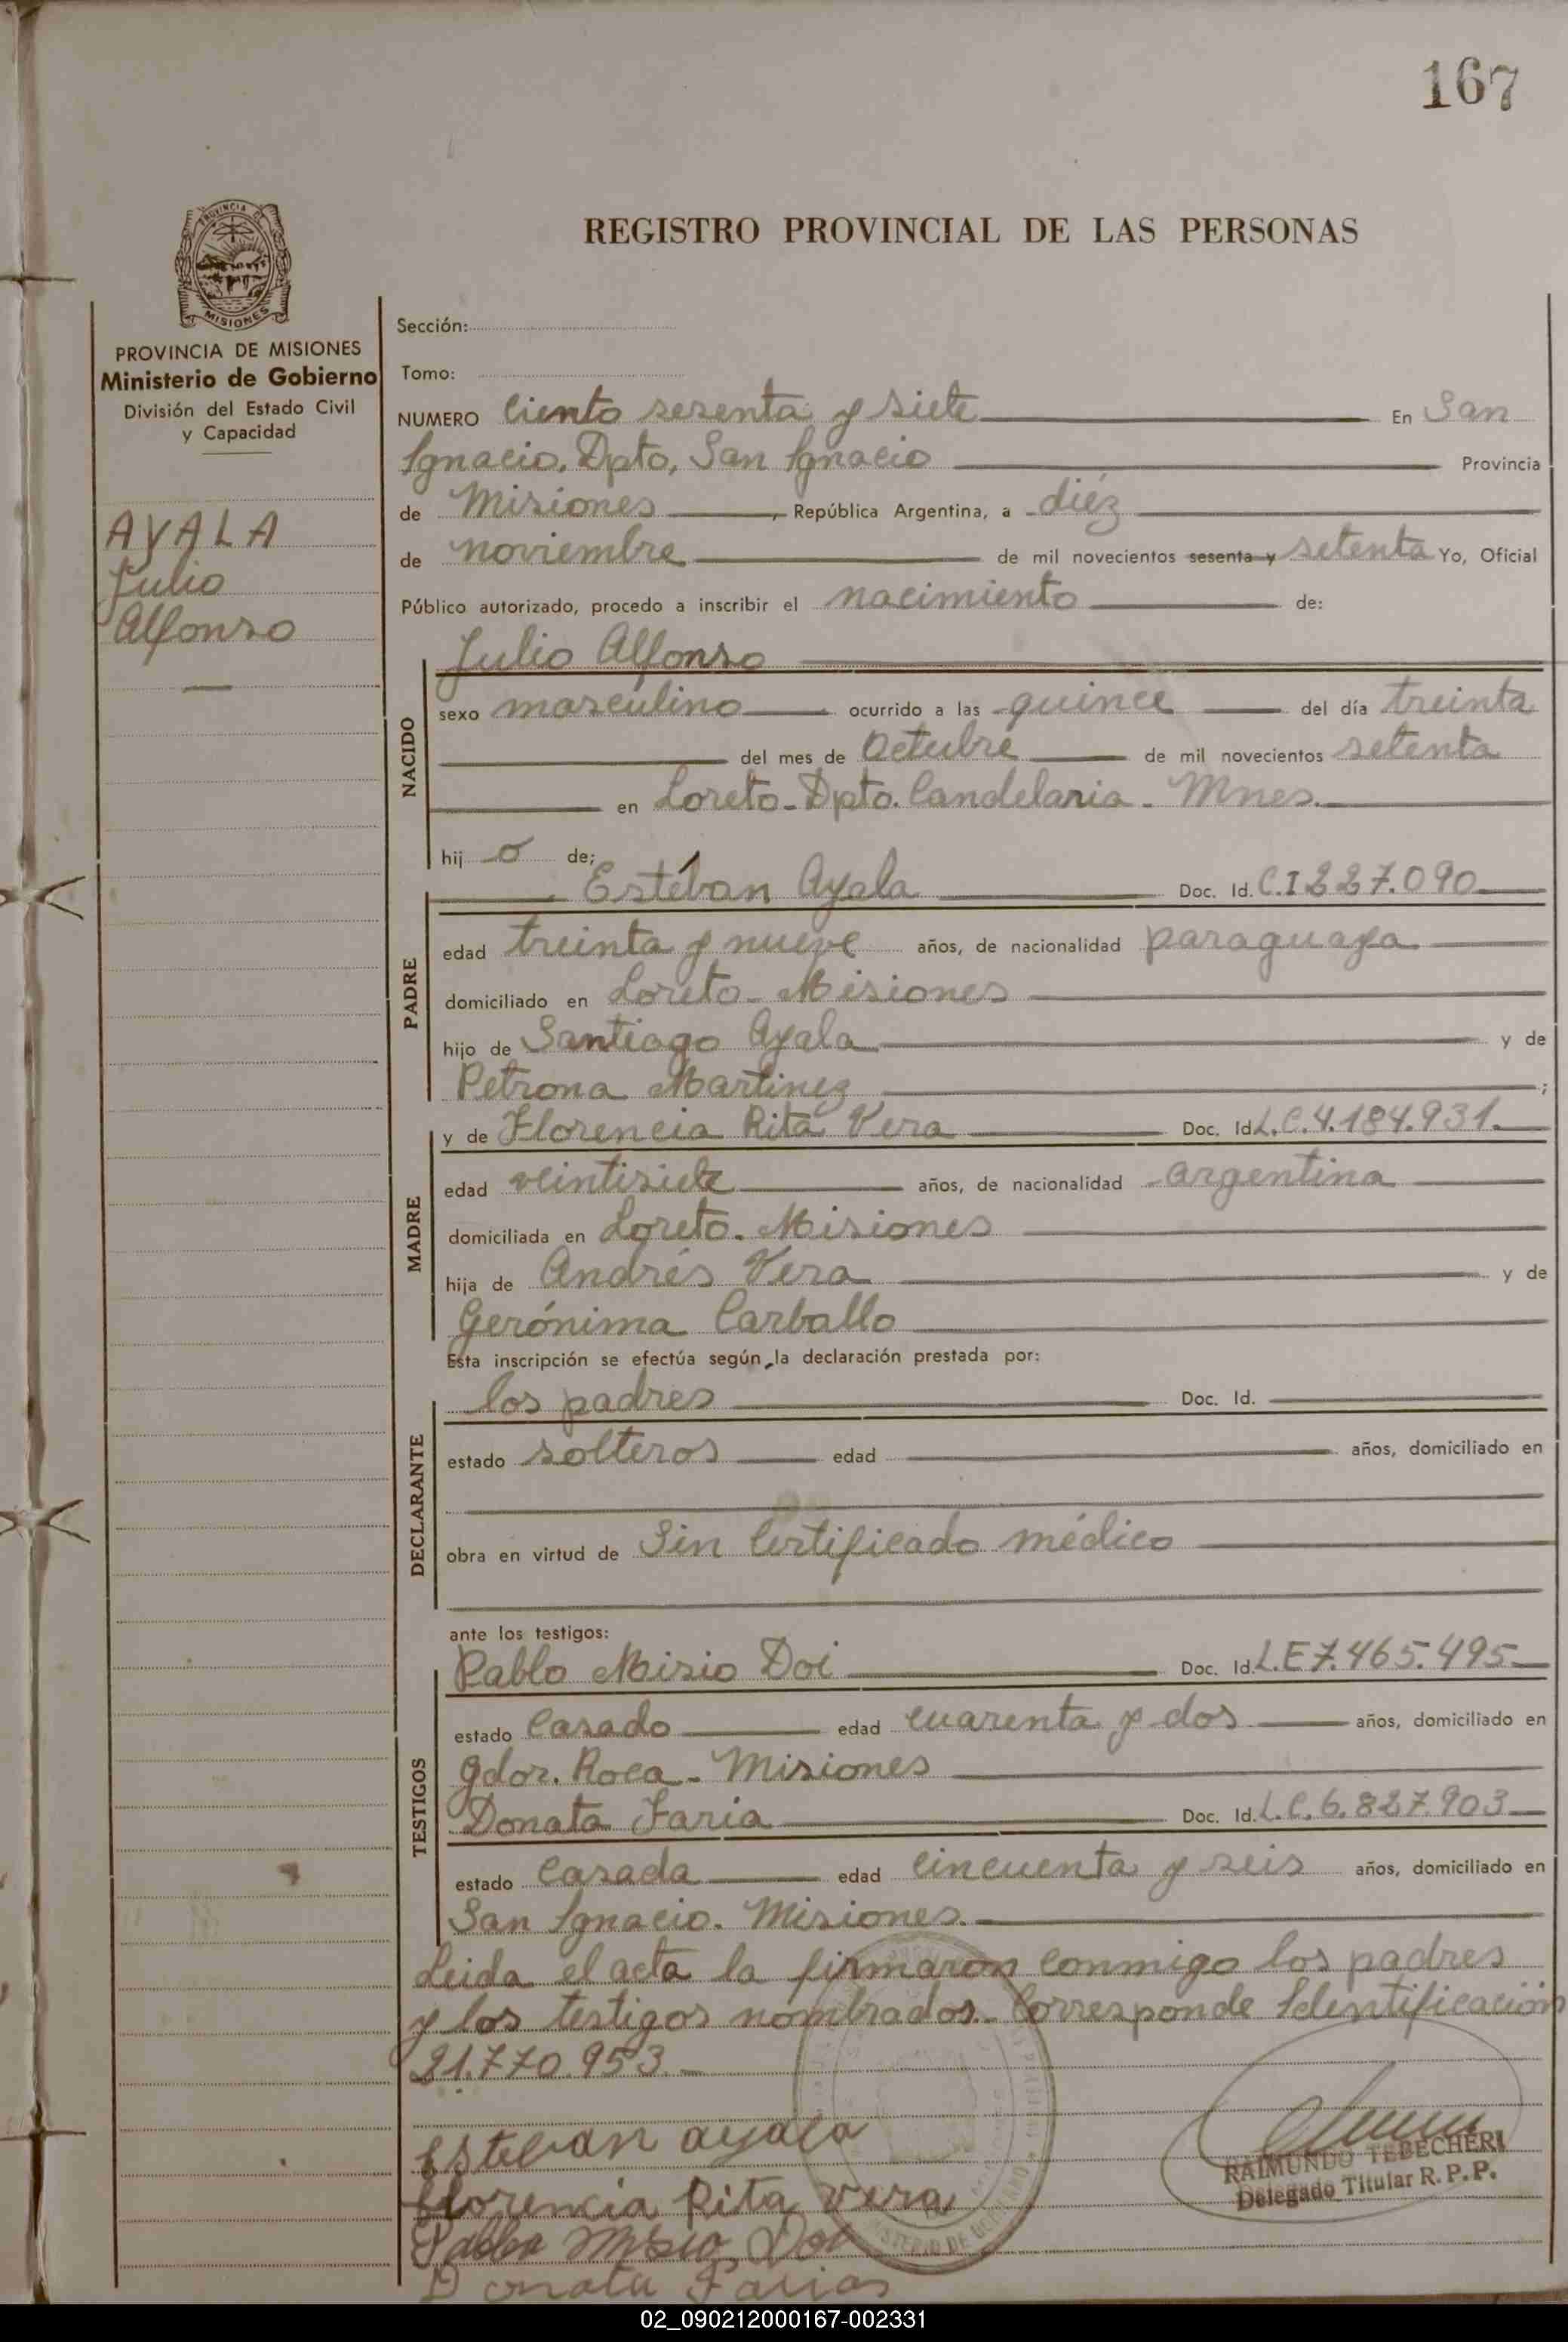 167
REGISTRO PROVINCIAL DE LAS PERSONAS
PROVINCIA DE
MISIONES
PROVINCIA DE MISIONES
Ministerio de Gobierno
División del Estado Civil
y Capacidad
AYALA
Julio
Alfonso
Sección:
Tomo:
NUMERO Ciento sesenta y siete En San
Ignacio. Dpto, San Ignacio Provincia
de Misiones, República Argentina, a diéz
de noviembre de mil novecientos sesenta y setenta Yo, Oficial
Público autorizado, procedo a inscribir el nacimiento de:
Julio Alfonso
NACIDO
sexo masculino ocurrido a las quince del día treinta
del mes de Octubre de mil novecientos setenta
en Loreto-Dpto. Candelaria - Mnes.
hijo de;
Estéban Ayala Doc. Id. C.I 227.090
PADRE
edad treinta y nueve años, de nacionalidad paraguaya
domiciliado en Loreto - Misiones
hijo de Santiago Ayala y de
Petrona Martinez ;
y de Florencia Rita Vera Doc. Id. L.C. 4.184.931.
MADRE
edad veintisiete años, de nacionalidad argentina
domiciliada en Loreto. Misiones
hija de Andrés Vera y de
Gerónima Carballo
Esta inscripción se efectúa según la declaración prestada por:
los padres Doc. Id.
DECLARANTE
estado solteros edad años, domiciliado en
obra en virtud de Sin Certificado médico
ante los testigos:
Pablo Misio Doi Doc. Id. L.E 7.465.495
TESTIGOS
estado Casado edad cuarenta y dos años, domiciliado en
Gdor. Roca - Misiones
Donata Faria Doc. Id. L.C. 6.827.903
estado Casada edad Cincuenta y seis años, domiciliado en
San Ignacio. Misiones.
Leida el acta la firmaron conmigo los padres
y los testigos nombrados. Corresponde Identificación
21.770.953.-
Esteban ayala
florencia Rita Vera
Pablo Misio Doi
Donata Farias
RAIMUNDO TEBECHERI
Delegado Titular R. P. P.
02_090212000167-002331